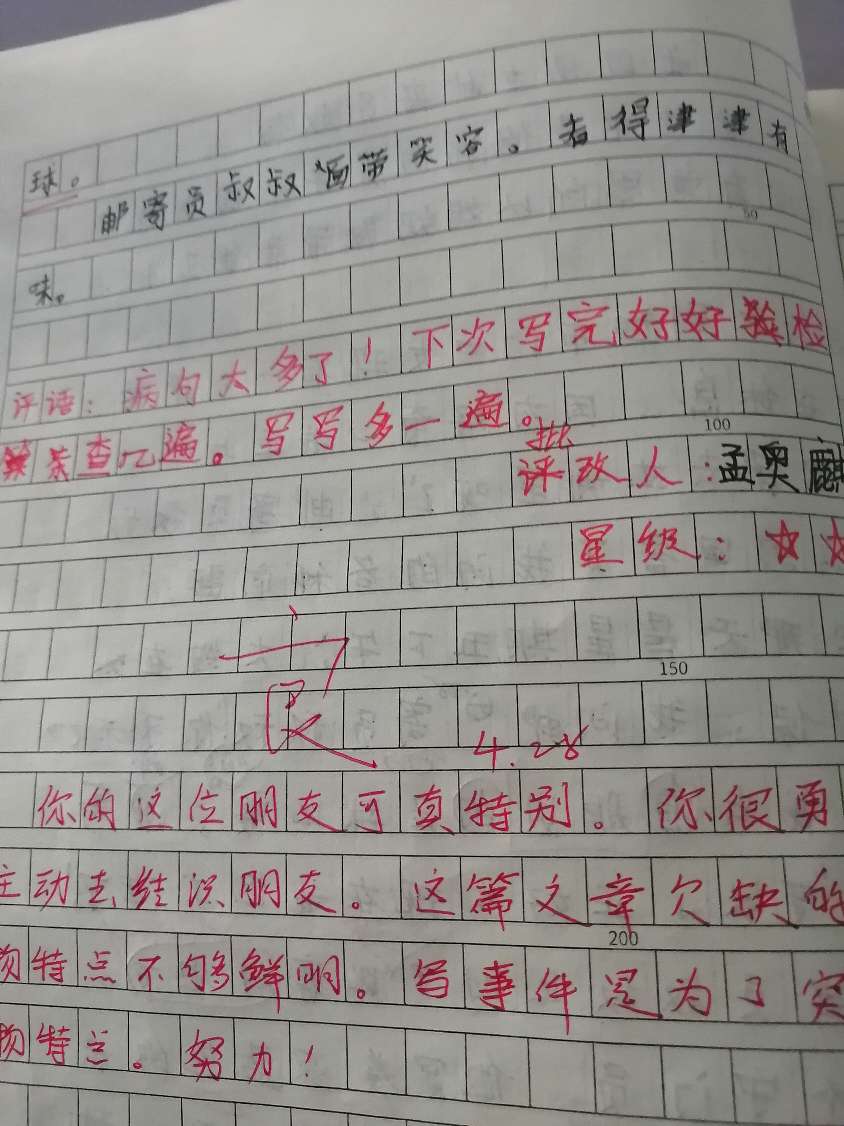 球。
邮寄员叔叔面带笑容。看得津津有
味。
50
评语：病句大多了！下次写完好好检
查几遍。写写多一遍。
100
批
评改人：孟奥麒
星级：☆☆
150
阅
4.28
你的这位朋友可真特别。你很勇
主动去结识朋友。这篇文章欠缺的
200
物特点不够鲜明。写事件是为了突
物特点。努力！